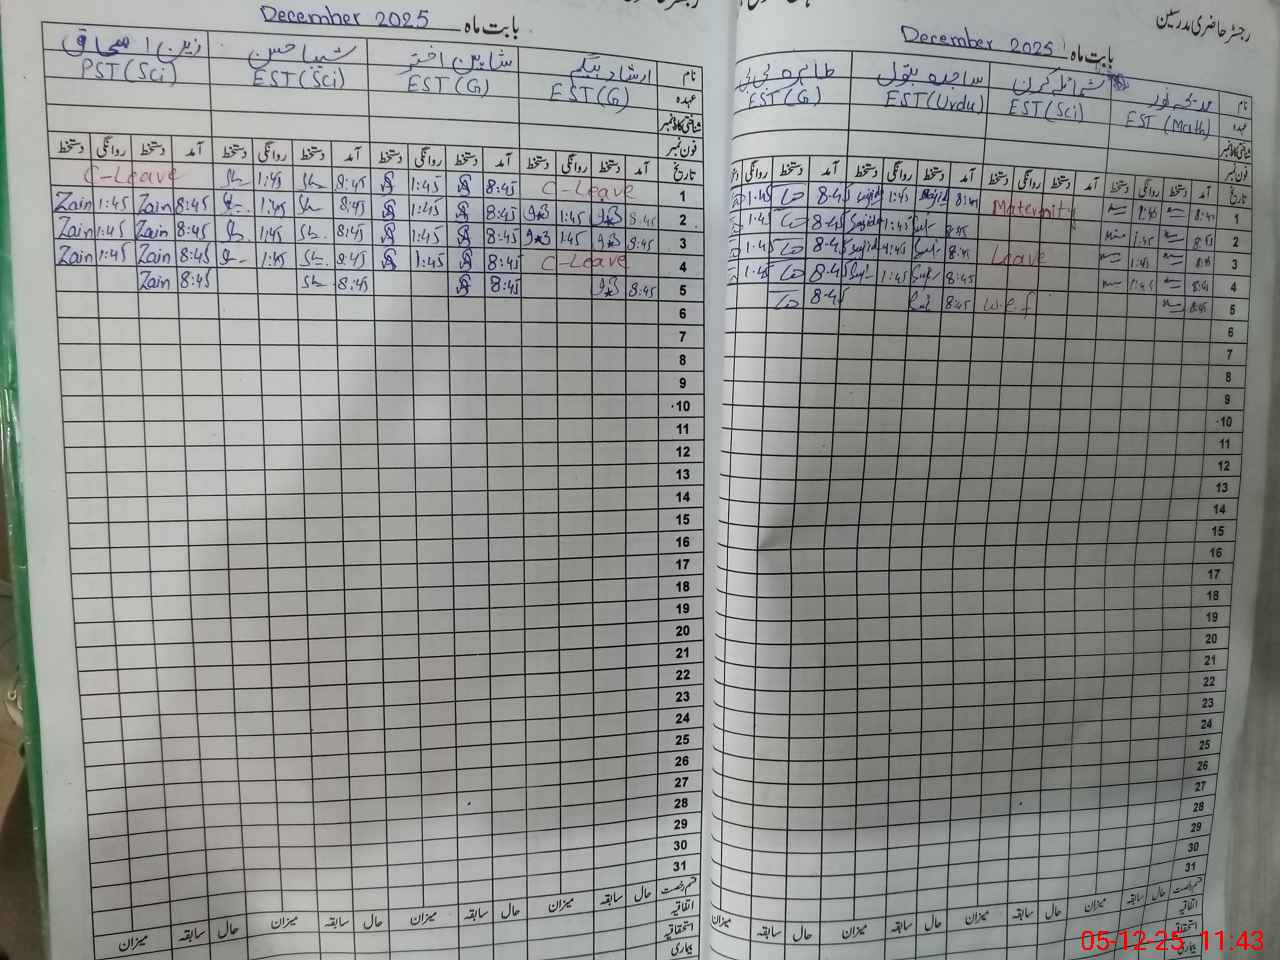 رجسٹر حاضری مدرسین
بابت ماہ December 2025
نام شمائلہ کرن ساجدہ بتول طاہرہ بی بی
عہدہ EST (Math) EST(Sci) EST(Urdu) EST(G)
شناختی کارڈ نمبر
فون نمبر
تاریخ آمد دستخط روانگی دستخط آمد دستخط روانگی دستخط آمد دستخط روانگی دستخط آمد دستخط روانگی
1 8:45 1:45 Maternity 8:45 Sajida 1:45 8:45 1:45
2 8:45 1:45 8:45 1:45 8:45 1:45
3 8:45 1:45 Leave 8:45 1:45 8:45 1:45
4 8:45 1:45 8:45 1:45 8:45 1:45
5 8:45 w.e.f 8:45 8:45
6
7
8
9
10
11
12
13
14
15
16
17
18
19
20
21
22
23
24
25
26
27
28
29
30
31
قسم رخصت حال سابقہ میزان حال سابقہ میزان حال سابقہ میزان حال سابقہ میزان
اتفاقیہ
استحقاقیہ
بیماری
بابت ماہ December 2025
نام ارشاد بیگم شاہین اختر شیبا حسن زین اسحاق
عہدہ EST(G) EST(G) EST(Sci) PST(Sci)
شناختی کارڈ نمبر
فون نمبر
تاریخ آمد دستخط روانگی دستخط آمد دستخط روانگی دستخط آمد دستخط روانگی دستخط آمد دستخط روانگی دستخط
1 C-Leave 8:45 1:45 8:45 1:45 C-Leave
2 8:45 1:45 8:45 1:45 8:45 1:45 8:45 Zain 1:45 Zain
3 8:45 1:45 8:45 1:45 8:45 1:45 8:45 Zain 1:45 Zain
4 C-Leave 8:45 1:45 8:45 1:45 8:45 Zain 1:45 Zain
5 8:45 8:45 8:45 8:45 Zain
6
7
8
9
10
11
12
13
14
15
16
17
18
19
20
21
22
23
24
25
26
27
28
29
30
31
قسم رخصت حال سابقہ میزان حال سابقہ میزان حال سابقہ میزان حال سابقہ میزان
اتفاقیہ
استحقاقیہ
بیماری
05-12-25 11:43